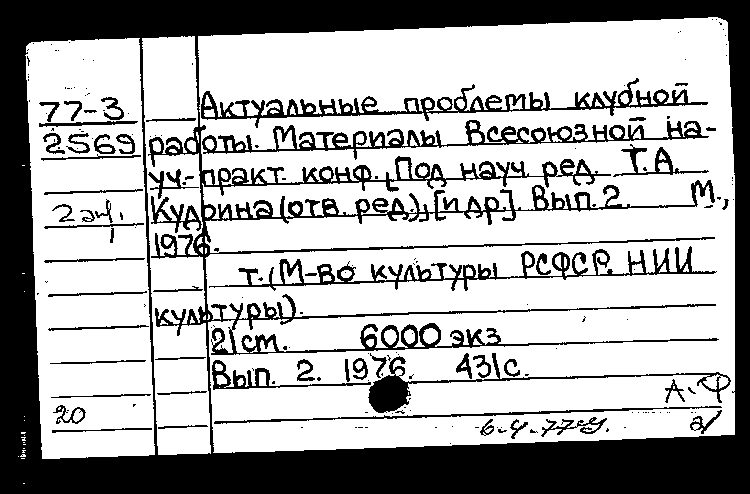 77-3 Актуальные проблемы клубной
2569 работы. Материалы Всесоюзной на-
уч.-практ. конф. [Под науч ред. Т.А.
2 экз. Кудрина (отв. ред.), [и др.]. Вып. 2. М.,
1976.
т. (М-во культуры РСФСР. НИИ
культуры).
21 см. 6000 экз
Вып. 2. 1976. 431 с.
А.Ф
20 6-4-77